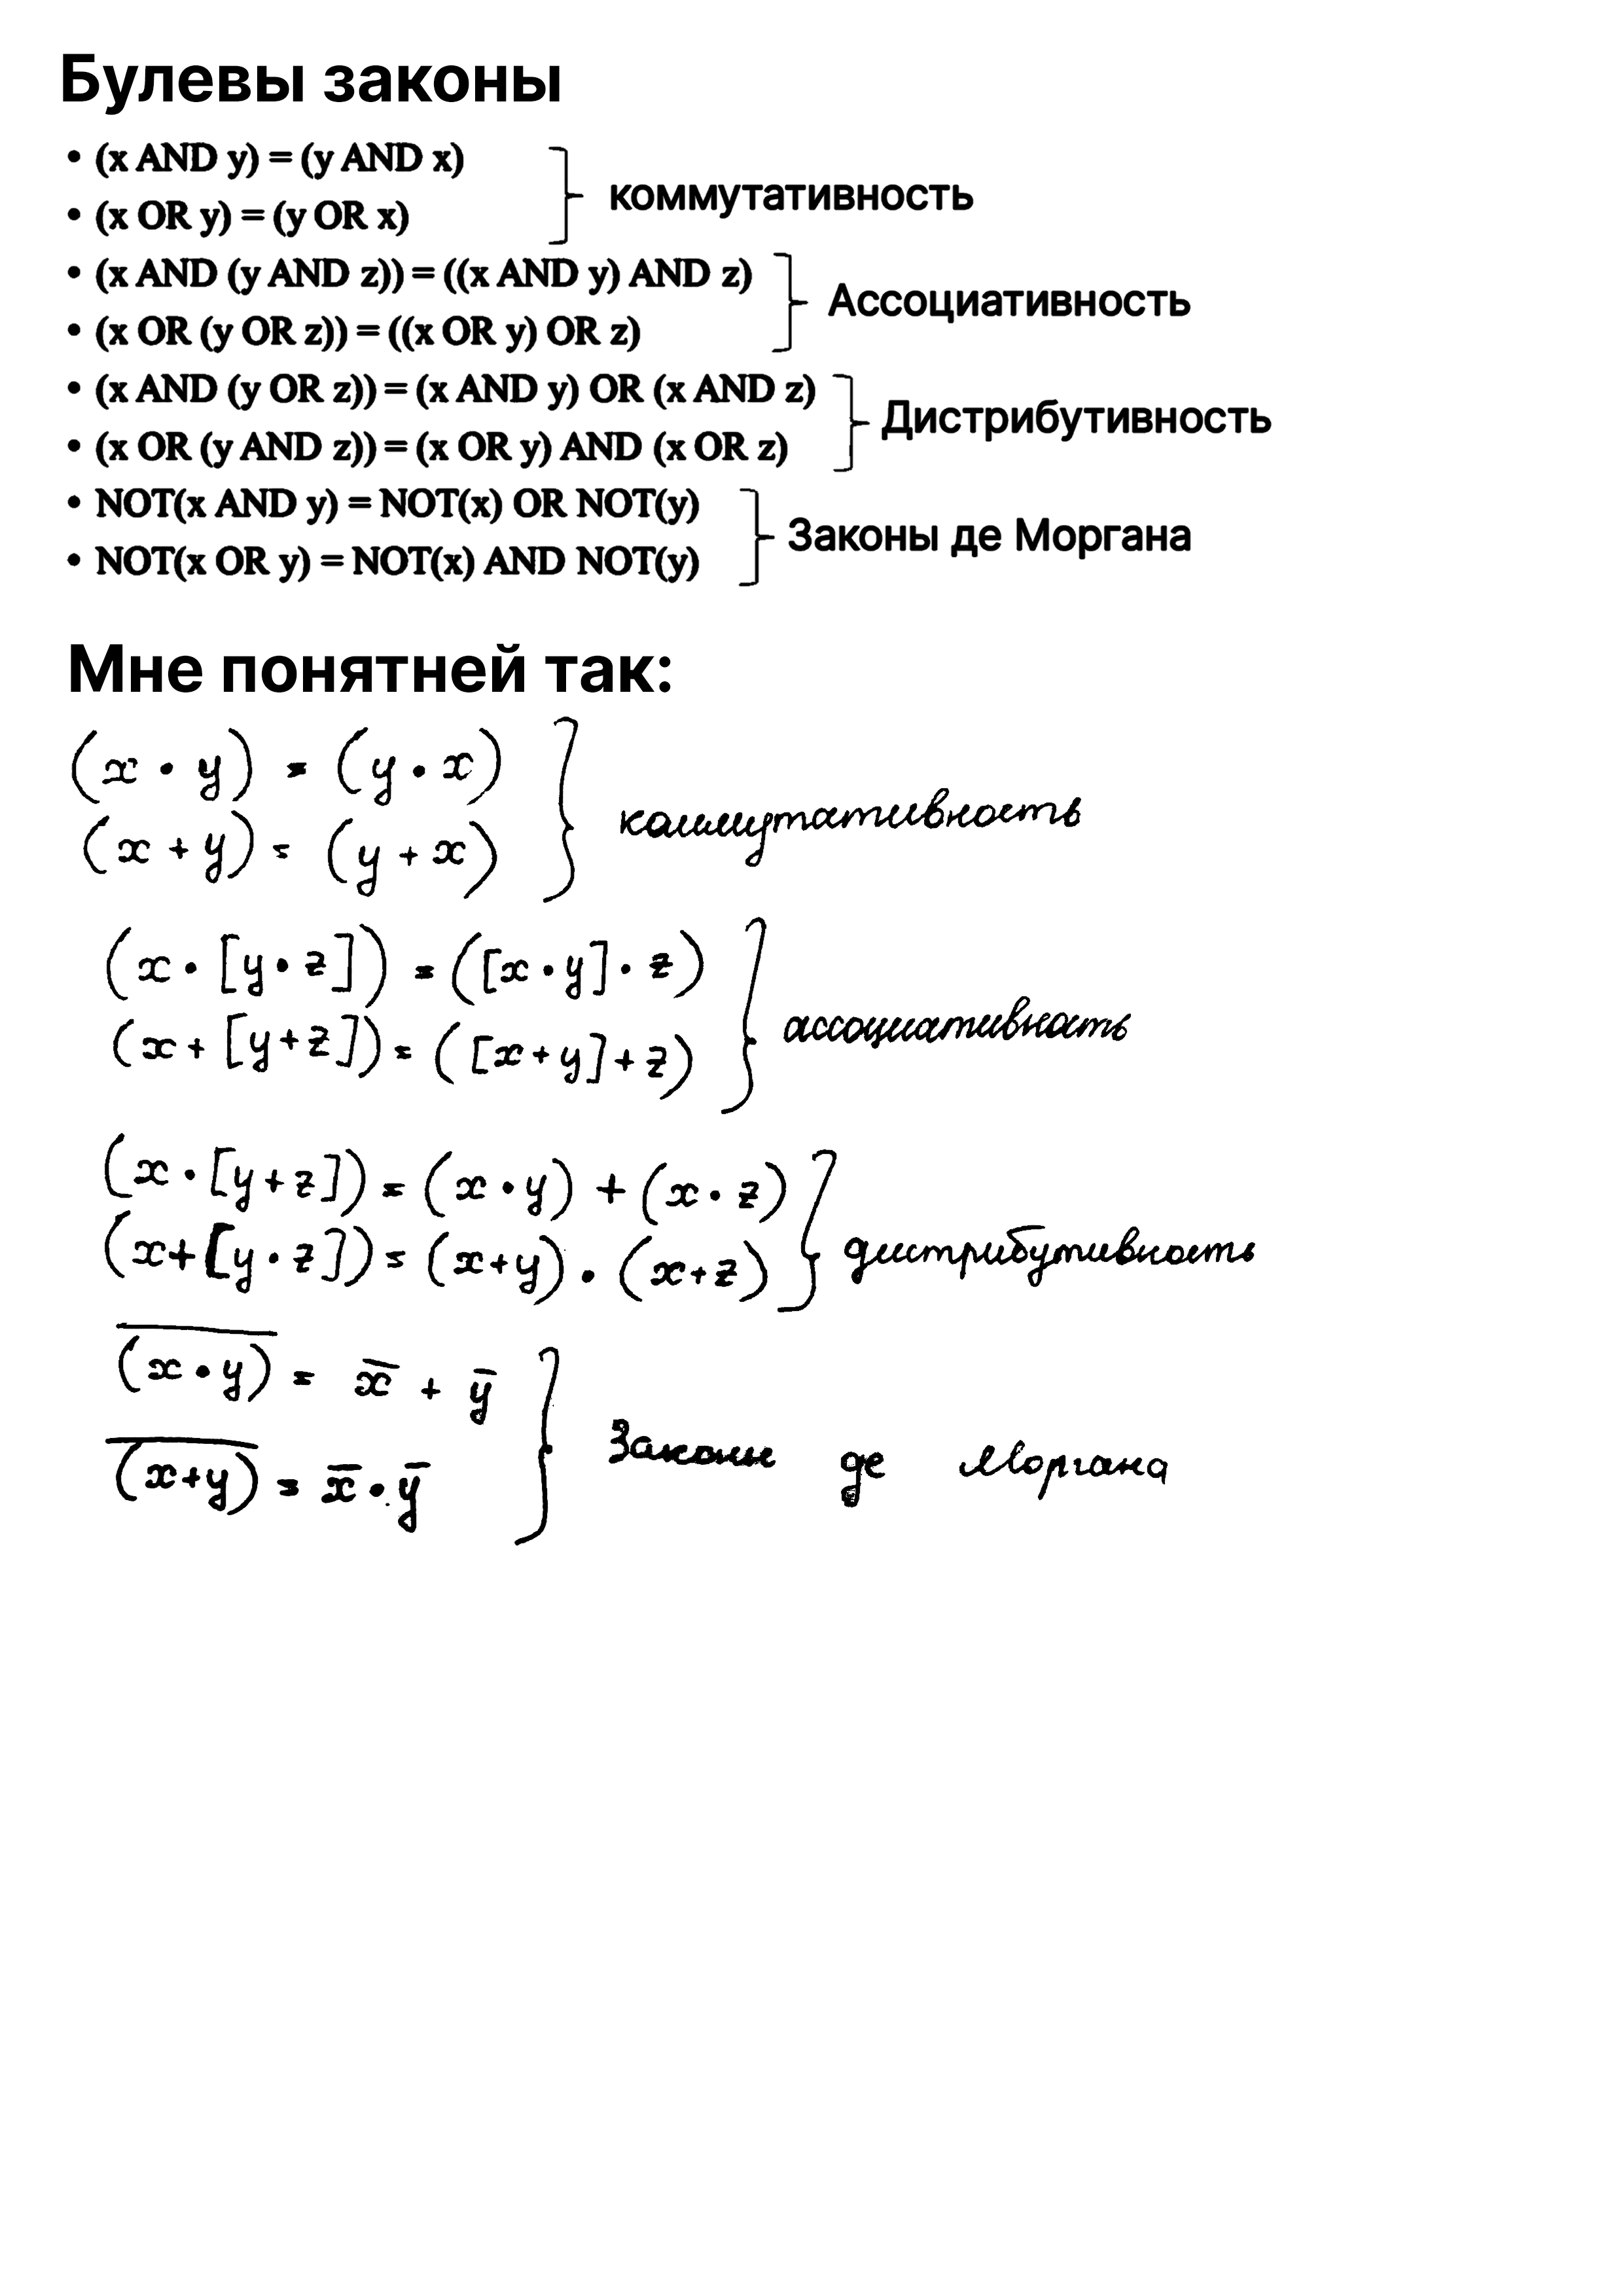 Булевы законы
• (x AND y) = (y AND x)
• (x OR y) = (y OR x)
коммутативность
• (x AND (y AND z)) = ((x AND y) AND z)
• (x OR (y OR z)) = ((x OR y) OR z)
Ассоциативность
• (x AND (y OR z)) = (x AND y) OR (x AND z)
• (x OR (y AND z)) = (x OR y) AND (x OR z)
Дистрибутивность
• NOT(x AND y) = NOT(x) OR NOT(y)
• NOT(x OR y) = NOT(x) AND NOT(y)
Законы де Моргана
Мне понятней так:
(x • y) = (y • x)
(x + y) = (y + x)
коммутативность
(x • [y • z]) = ([x • y] • z)
(x + [y + z]) = ([x + y] + z)
ассоциативность
(x • [y + z]) = (x • y) + (x • z)
(x + [y • z]) = (x + y) • (x + z)
дистрибутивность
(x̅ ̅•̅ ̅y̅) = x̅ + y̅
(x̅ ̅+̅ ̅y̅) = x̅ • y̅
Законы де Моргана